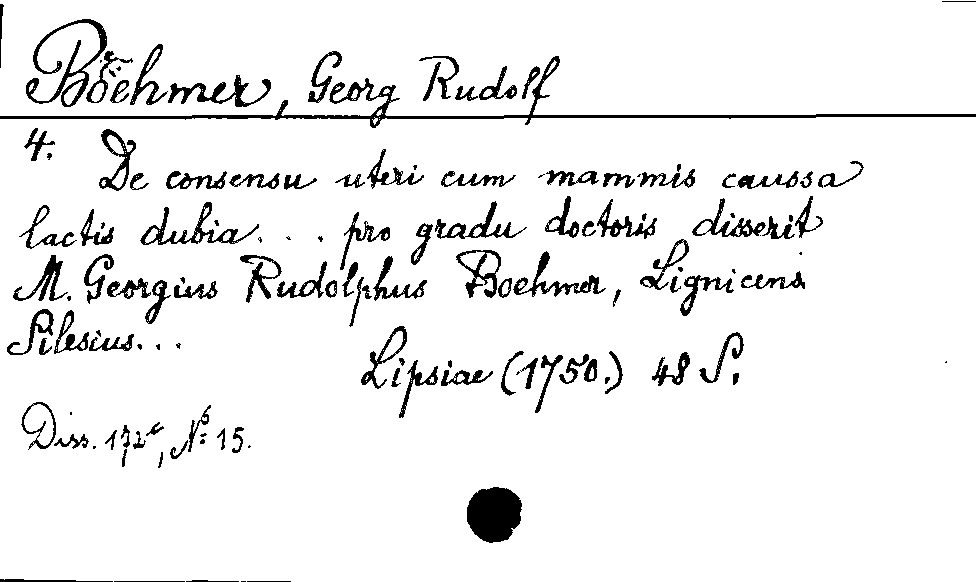 Boehmer, Georg Rudolf
4. De consensu uteri cum mammis caussa
lactis dubia... pro gradu doctoris disserit
M. Georgius Rudolphus Boehmer, Lignicens
Silesius...
Lipsiae (1750.) 48 S.
Diss. 172 c, No 15.